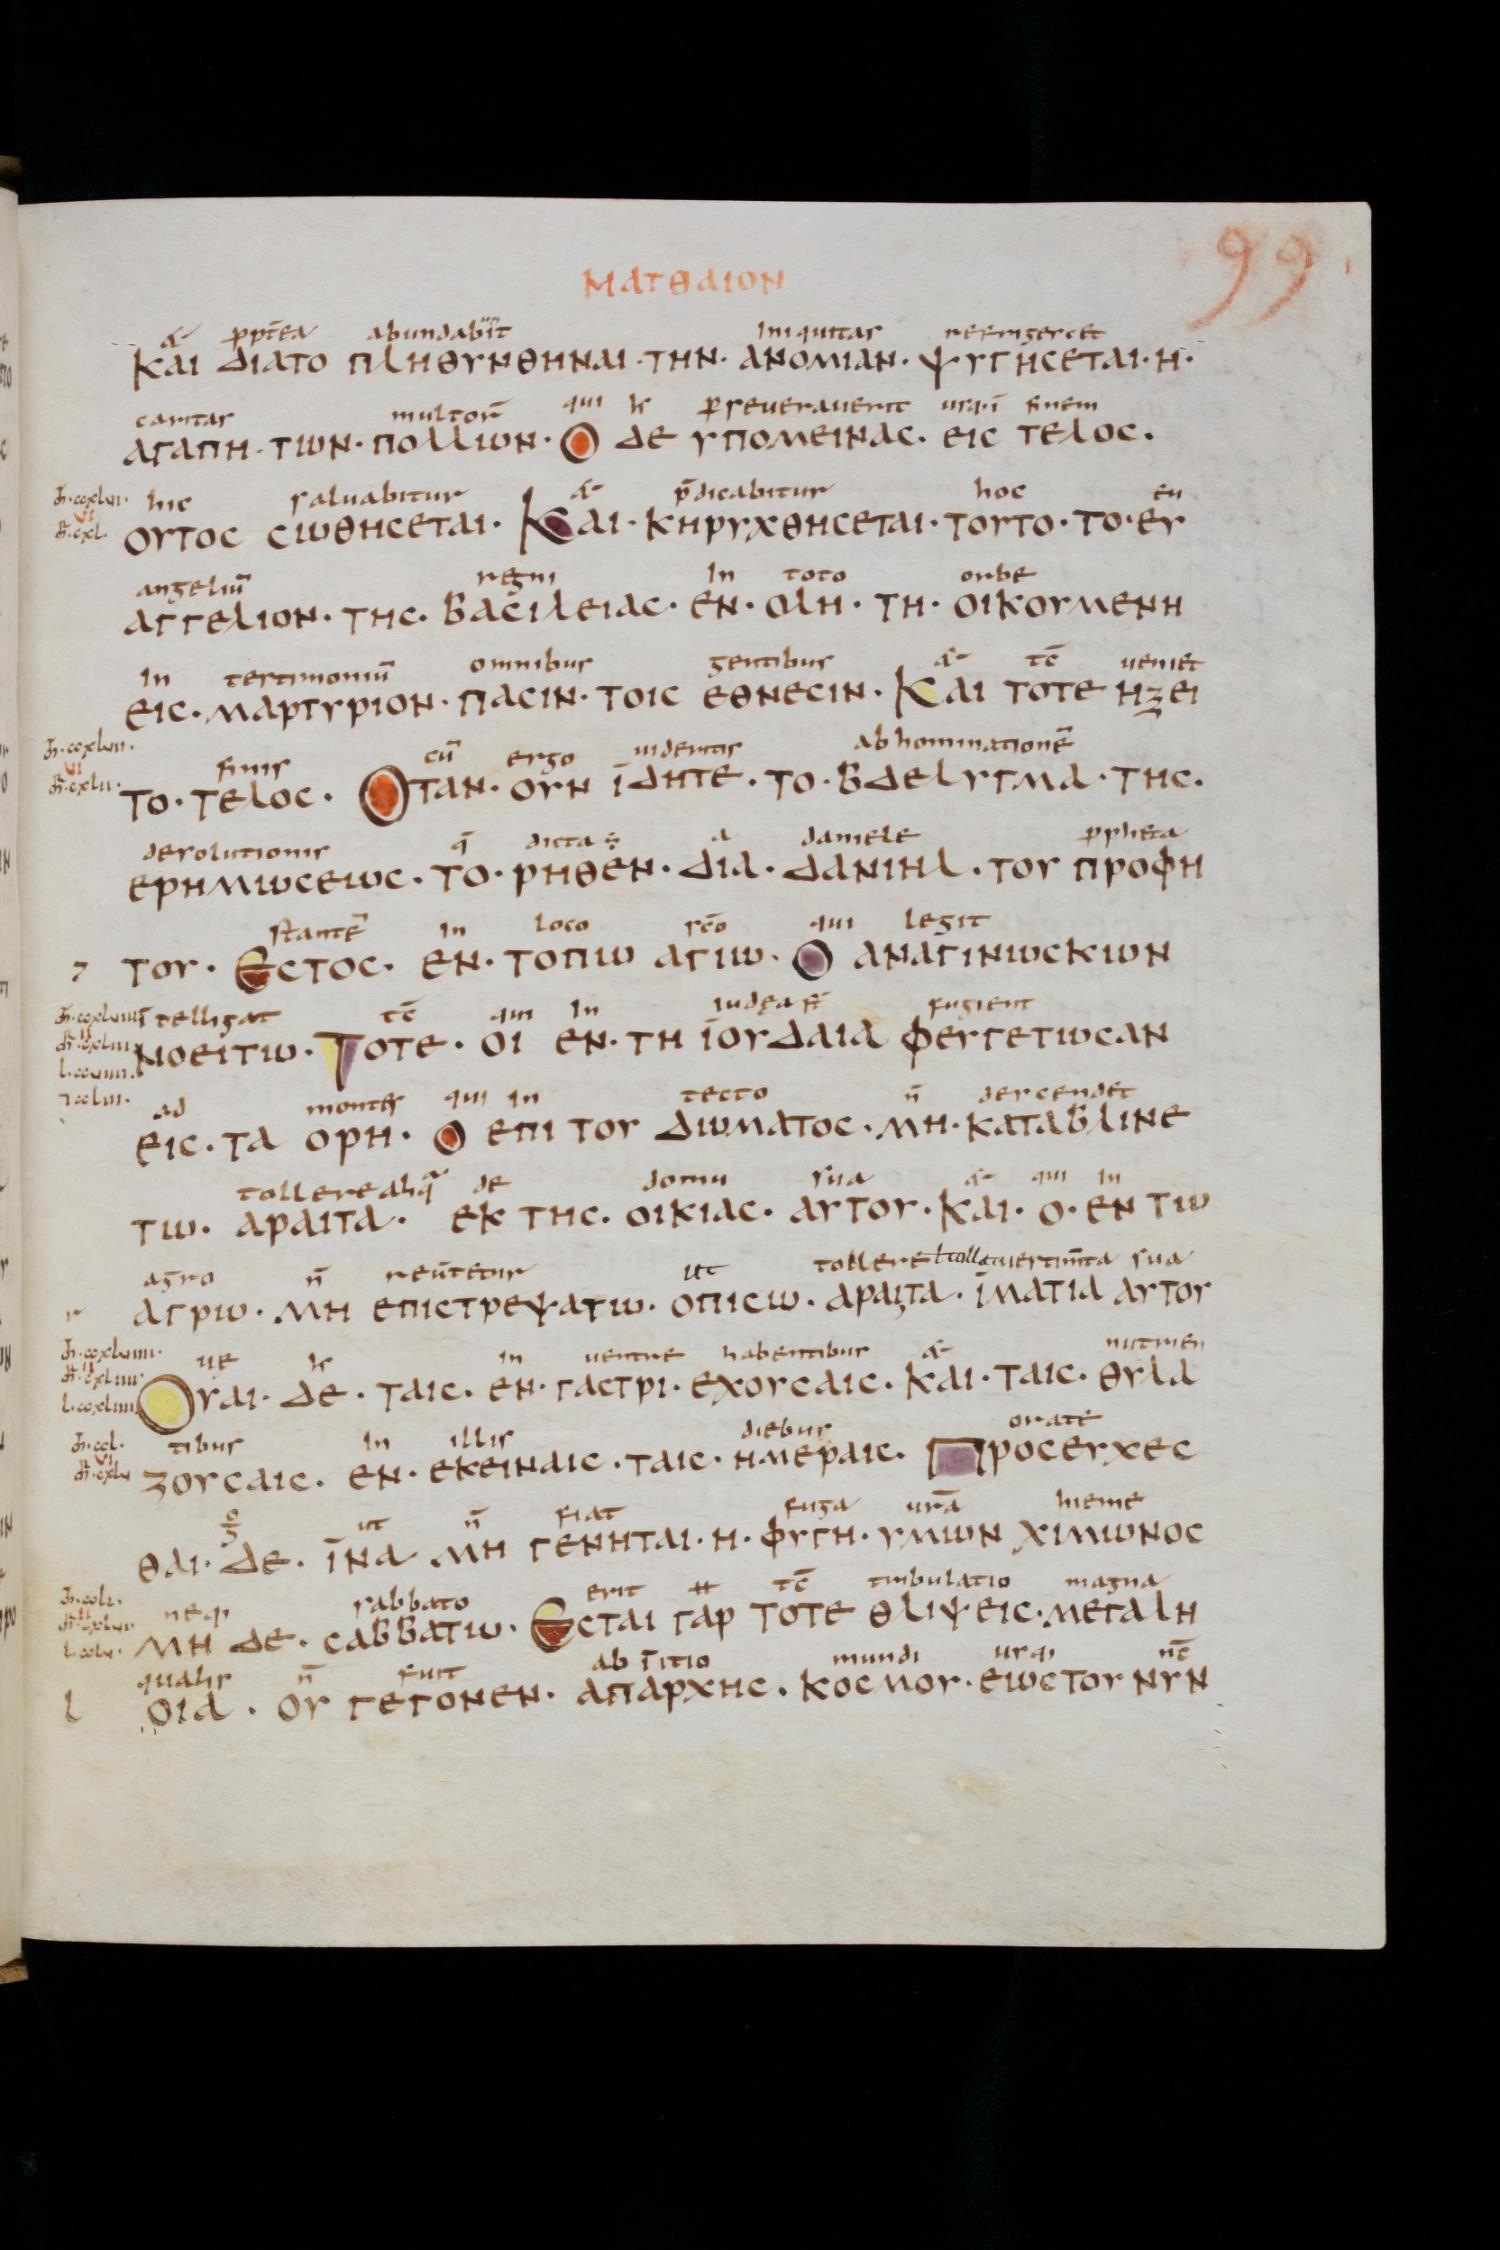 99
ΜΑΤΘΑΙΟΝ
abundab iniquitas refrigescet
ΚΑΙ ΔΙΑΤΟ ΠΛΗΘΥΝΘΗΝΑΙ · ΤΗΝ · ΑΝΟΜΙΑΝ · ΨΥΓΗСΕΤΑΙ · Η ·
caritas multor̄ qui perseuerauerit usq· ī finem
ΑΓΑΠΗ · ΤΩΝ · ΠΟΛΛΩΝ · Ο ΔΕ ΥΠΟΜΕΙΝΑС · ΕΙС ΤΕΛΟС ·
hic saluabitur p̄dicabitur hoc eu
ΟΥΤΟС СΩΘΗСΕΤΑΙ · ΚΑΙ · ΚΗΡΥΧΘΗСΕΤΑΙ · ΤΟΥΤΟ · ΤΟ · ΕΥ
angeliū regni In toto orbe
ΑΓΓΕΛΙΟΝ · ΤΗС · ΒΑСΙΛΕΙΑС · ΕΝ · ΟΛΗ · ΤΗ · ΟΙΚΟΥΜΕΝΗ
In testimoniū omnibus gentibus tc̄ ueniet
ΕΙС · ΜΑΡΤΥΡΙΟΝ · ΠΑСΙΝ · ΤΟΙС ΕΘΝΕСΙΝ · ΚΑΙ ΤΟΤΕ ΗΞΕΙ
finis cū ergo uidentis abhominationē
ΤΟ · ΤΕΛΟС · ΟΤΑΝ · ΟΥΝ ΙΔΗΤΕ · ΤΟ · ΒΔΕΛΥΓΜΑ · ΤΗС ·
desolutionis q̄ dicta a daniele ppheta
ΕΡΗΜΩСΕΩС · ΤΟ · ΡΗΘΕΝ · ΔΙΑ · ΔΑΝΙΗΛ · ΤΟΥ ΠΡΟΦΗ
stantē in loco sc̄o qui legit
ΤΟΥ · ΕСΤΟС · ΕΝ · ΤΟΠΩ ΑΓΙΩ · Ο ΑΝΑΓΙΝΩСΚΩΝ
ītelligat tc̄ qui In iudęa fugient
ΝΟΕΙΤΩ · ΤΟΤΕ · ΟΙ ΕΝ · ΤΗ ΙΟΥΔΑΙΑ ΦΕΥΓΕΤΩСΑΝ
ad montes qui in tecto n̄ descendet
ΕΙС · ΤΑ ΟΡΗ · Ο ΕΠΙ ΤΟΥ ΔΩΜΑΤΟС · ΜΗ · ΚΑΤΑΒΛΙΝΕ
tollere aliq̄ de domu sua qui in
ΤΩ · ΑΡΑΙΤΑ · ΕΚ ΤΗС · ΟΙΚΙΑС · ΑΥΤΟΥ · ΚΑΙ · Ο · ΕΝ ΤΩ
agro n̄ tollere sua
ΑΓΡΩ · ΜΗ ΕΠΙСΤΡΕΨΑΤΩ · ΟΠΙСΩ · ΑΡΑΙΤΑ · ΙΜΑΤΙΑ ΑΥΤΟΥ
uę in uentre habentibus nutrien
ΟΥΑΙ · ΔΕ · ΤΑΙС · ΕΝ · ΓΑСΤΡΙ · ΕΧΟΥСΑΙС · ΚΑΙ · ΤΑΙС · ΘΥΛΑ
tibus in illis diebus orate
ΖΟΥСΑΙС · ΕΝ · ΕΚΕΙΝΑΙС · ΤΑΙС · ΗΜΕΡΑΙС · ΠΡΟСΕΥΧΕС
ut n̄ fiat fuga urā hieme
ΘΑΙ · ΔΕ · ΙΝΑ ΜΗ ΓΕΝΗΤΑΙ · Η · ΦΥΓΗ · ΥΜΩΝ ΧΙΜΩΝΟС
neq; sabbato erit tc̄ tribulatio magna
ΜΗ ΔΕ · СΑΒΒΑΤΩ · ΕСΤΑΙ ΓΑΡ ΤΟΤΕ ΘΛΙΨΕΙС · ΜΕΓΑΛΗ
qualis n̄ fuit ab ītitio mundi usq; nc̄
ΟΙΑ · ΟΥ ΓΕΓΟΝΕΝ · ΑΠΑΡΧΗС · ΚΟСΜΟΥ · ΕΩСΤΟΥ ΝΥΝ